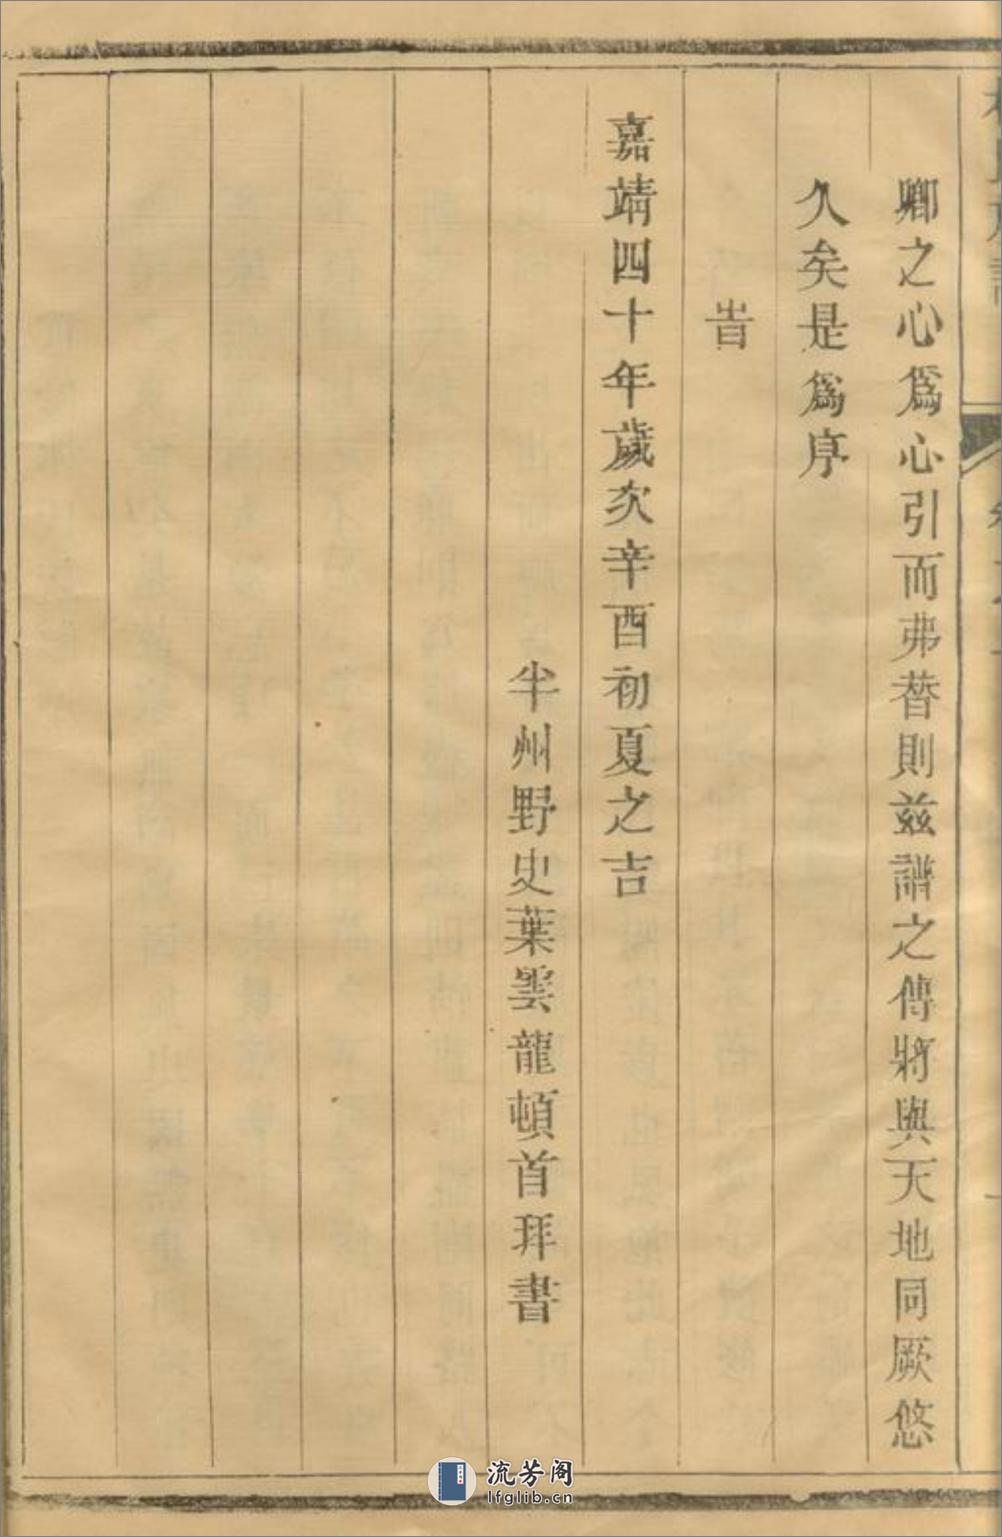 卿之心爲心引而弗替則玆譜之傳將與天地同厥悠
久矣是爲序
旹
嘉靖四十年歲次辛酉初夏之吉
半州野史葉雲龍頓首拜書
流芳阁
lfglib.cn